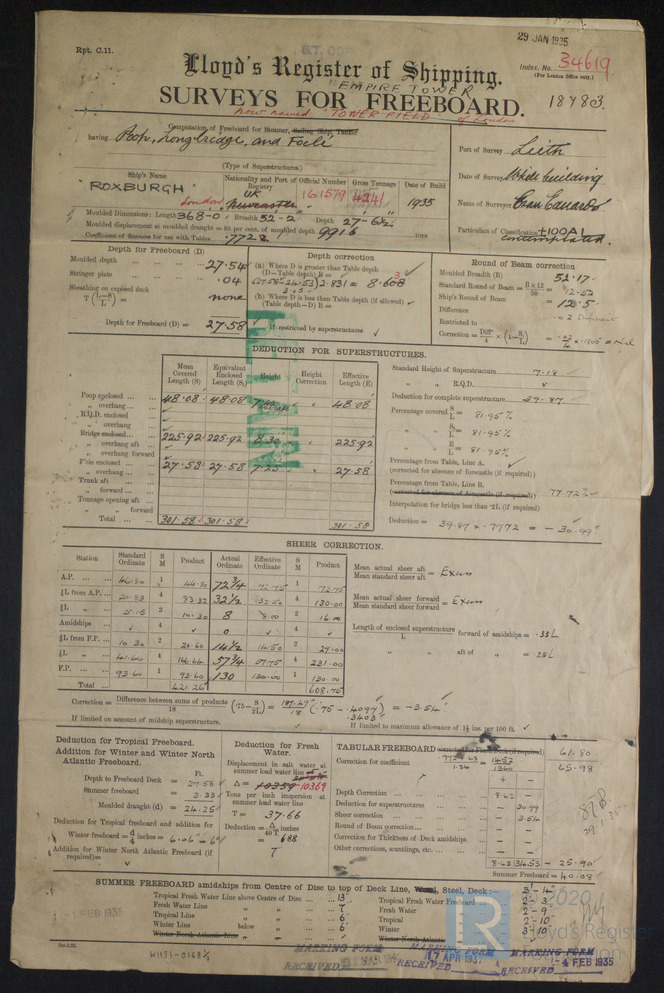 Rpt. C.11.
29 JAN 1935
Index. No. 34619
(For London Office only.)
Lloyd's Register of Shipping.
"EMPIRE TOWER
SURVEYS FOR FREEBOARD.
18783.
now named "TOWER FIELD" of London
Computation of Freeboard for Steamer, Sailing Ship, Tanker
having Poop, Long bridge, and Focle
(Type of Superstructures.)
Port of Survey Leith
Date of Survey While building
Name of Surveyor
Particulars of Classification +100A1
contemplated.
Ship's Name
Nationality and Port of Registry
Official Number
Gross Tonnage
Date of Build
"ROXBURGH"
UK
London
Newcastle
161579
4241
1935
Moulded Dimensions: Length 368-0 Breadth 52'-2" Depth 27-6½"
Moulded displacement at moulded draught = 85 per cent. of moulded depth 9916 tons
Coefficient of fineness for use with Tables .772
Depth for Freeboard (D)
Moulded depth 27.54
Stringer plate .04
Sheathing on exposed deck none
T (L-S / L) =
Depth for Freeboard (D) = 27.58
Depth correction
(a) Where D is greater than Table depth
(D—Table depth) R =
(27.58-24.53) 2.831 = 8.60
(b) Where D is less than Table depth (if allowed)
(Table depth—D) R =
If restricted by superstructures
Round of Beam correction
Moulded Breadth (B) 52.17
Standard Round of Beam = B×12/50 = 12.52
Ship's Round of Beam = 12.5
Difference
Restricted to
Correction = Diff/4 × (1-S/L)
DEDUCTION FOR SUPERSTRUCTURES.
Mean Covered Length (S)
Equivalent Enclosed Length (S₁)
Height
Height Correction
Effective Length (E)
Poop enclosed 48.08 48.08 48.08
„ overhang
R.Q.D. enclosed
„ overhang
Bridge enclosed 225.92 225.92 8.30 225.92
„ overhang aft
„ overhang forward
F'cle enclosed 27.58 27.58 7.25 27.58
„ overhang
Trunk aft
„ forward
Tonnage opening aft
„ „ forward
Total 301.58 301.58 301.58
Standard Height of Superstructure 7.18
„ „ R.Q.D.
Deduction for complete superstructure 39.87
Percentage covered S/L = 81.95%
„ S₁/L = 81.95%
„ E/L = 81.95%
Percentage from Table, Line A.
(corrected for absence of forecastle (if required))
Percentage from Table, Line B. 77.72%
(corrected for absence of forecastle (if required))
Interpolation for bridge less than ·2L (if required)
Deduction = 39.87 × .7772 = - 30.99"
SHEER CORRECTION.
Station
Standard Ordinate
S M
Product
Actual Ordinate
Effective Ordinate
S M
Product
A.P. 46.80 1 46.80 72¾ 72.75 1 72.75
⅙L from A.P. 20.83 4 83.32 32½ 32.50 4 130.00
⅓L „ 5.15 2 10.30 8 8.00 2 16.00
Amidships 4 0 4
⅓L from F.P. 10.30 2 20.60 14½ 14.50 2 29.00
⅙L „ 41.66 4 166.64 57¾ 57.75 4 231.00
F.P. 93.60 1 93.60 130 130.00 1 130.00
Total 421.26 608.75
Mean actual sheer aft
Mean standard sheer aft = Excess
Mean actual sheer forward
Mean standard sheer forward = Excess
Length of enclosed superstructure / L forward of amidships =
„ „ aft of „ =
Correction = Difference between sums of products / 18 (·75 - S/2L) = 187.49/18 (.75 - .4097) = -3.54"
.3403
If limited on account of midship superstructure.
If limited to maximum allowance of 1½ ins. per 100 ft.
Deduction for Tropical Freeboard.
Addition for Winter and Winter North
Atlantic Freeboard.
Ft.
Depth to Freeboard Deck = 27.58
Summer freeboard = 3.33
Moulded draught (d) = 24.25
Deduction for Tropical freeboard and addition for
Winter freeboard = d/4 inches = 6.06 = 6"
Addition for Winter North Atlantic Freeboard (if
required)=
Deduction for Fresh
Water.
Displacement in salt water at
summer load water line
Δ = 10359 10369
Tons per inch immersion at
summer load water line
T = 37.66
Deduction = Δ/40T inches
= 6.88
7"
TABULAR FREEBOARD corrected for Flush Deck (if required) 61.80
Correction for coefficient .772+.68/1.36 = 1452/1360 65.98
Depth Correction 8.63
Deduction for superstructures 30.99
Sheer correction 3.54
Round of Beam correction
Correction for Thickness of Deck amidships
Other corrections, scantlings, etc.
8.63 34.53 - 25.90
Summer Freeboard = 40.08
SUMMER FREEBOARD amidships from Centre of Disc to top of Deck Line, Wood, Steel, Deck: 3'-4"
Tropical Fresh Water Line above Centre of Disc 13"
Fresh Water Line „ 7"
Tropical Line „ 6"
Winter Line below „ 6"
Winter North Atlantic Line „
Tropical Fresh Water Freeboard 2'-3"
Fresh Water „ 2'-9"
Tropical „ 2'-10"
Winter „ 3'-10"
Winter North Atlantic „
-1 FEB 1935
W1131-0168½
MARKING FORM
RECEIVED
MARKING FORM
RECEIVED 17 APR 1937
MARKING FORM
RECEIVED -4 FEB 1935
R
2020
Lloyd's Register